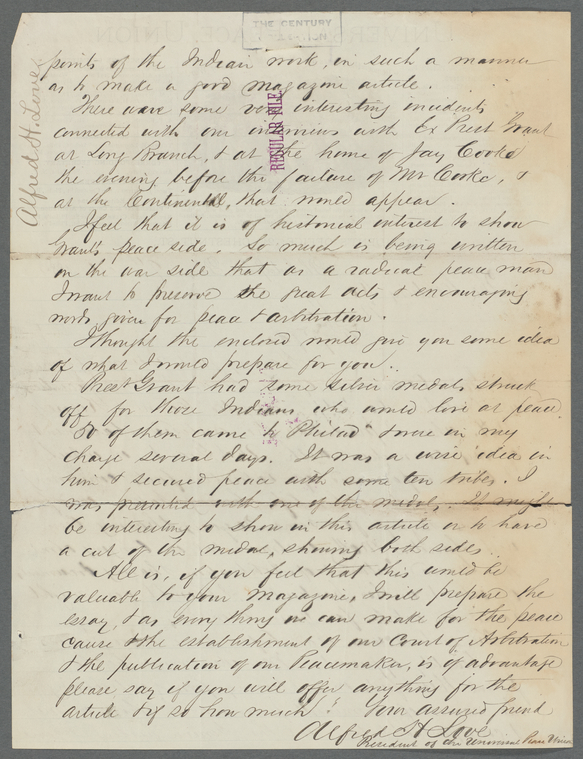 THE CENTURY
points of the Indian work, in such a manner
as to make a good magazine article.
There were some very interesting incidents
connected with our interviews with Ex Prest Grant
at Long Branch, & at the home of Jay Cooke
the evening before the failure of Mr Cooke, &
at the Continental, that would appear.
I feel that it is of historical interest to show
Grant's peace side. So much is being written
on the war side that as a radical peace man
I want to preserve the great acts & encouraging
words given for peace & arbitration.
I thought the enclosed would give you some idea
of what I would prepare for you.
Prest Grant had some silver medals struck
off for those Indians who would live at peace.
of them came to Philada & were in my
charge several days. It was a wise idea in
him & secured peace with some ten tribes. I
was presented with one of the medals. It might
be interesting to show in this article or to have
a cut of the medal, showing both sides.
All is, if you feel that this would be
valuable to your magazine, I will prepare the
essay, & as every thing we can make for the peace
cause & the establishment of our Court of Arbitration
& the publication of our Peacemaker, is of advantage
please say if you will offer anything for the
article & if so how much? Your assured friend
Alfred H Love
President of the Universal Peace Union
Alfred H. Love
REGULAR FILE